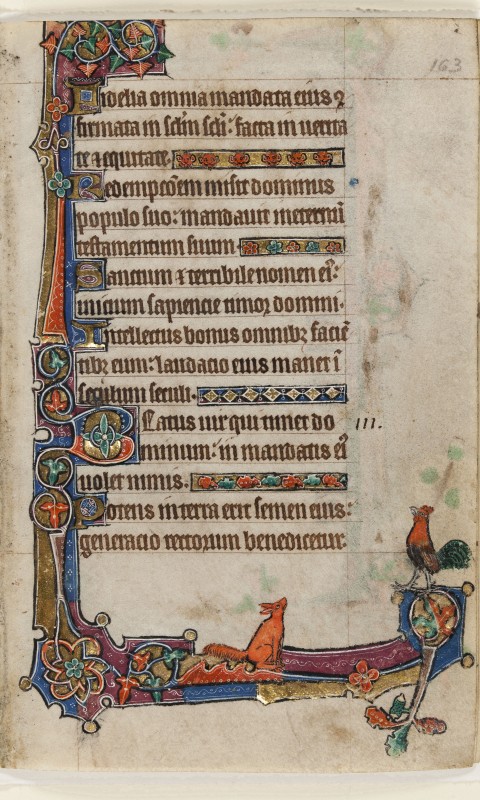 163
Fidelia omnia mandata eius ⁊
firmata in sclm scli: facta in uerita
te ⁊ equitate.
Redempcōem misit dominus
populo suo: mandauit ineternū
testamentum suum.
Sanctum ⁊ terribile nomen ei':
inicium sapiencie timor domini.
Intellectus bonus omnibz faciē
tibz eum: laudacio eius manet ī
seculum seculi.
Beatus uir qui timet do m.
minum: in mandatis ei'
uolet nimis.
Potens in terra erit semen eius:
generacio rectorum benedicetur.